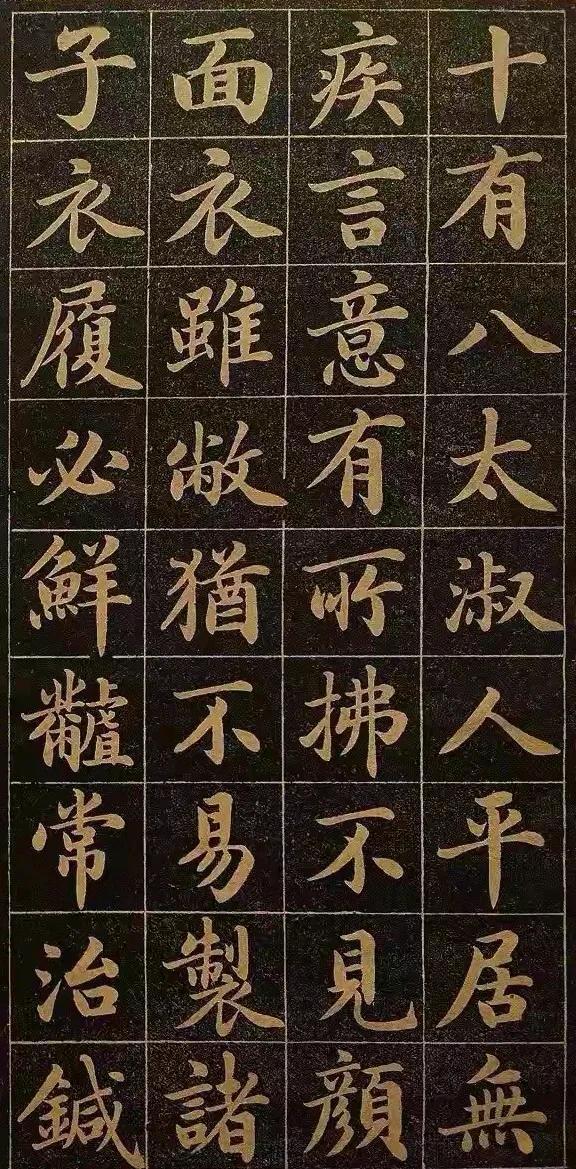 十有八太淑人平居無
疾言意有所拂不見顏
面衣雖敝猶不易製諸
子衣履必鮮齇常治鍼